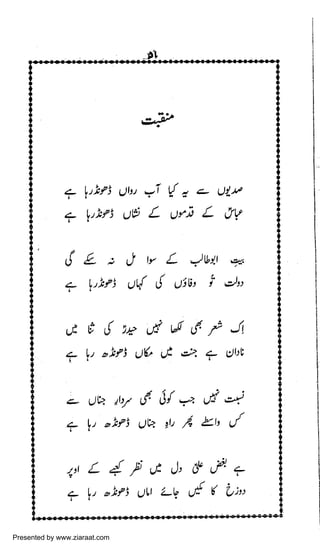 ۵۱
منقبت
صدیوں سے یہ کیا آب رواں ڈھونڈ رہا ہے
عباسؑ کے قدموں کے نشاں ڈھونڈ رہا ہے
بیتِ ابوطالب کے سوا مل نہ سکے گی
دولت تو وفاؤں کی کہاں ڈھونڈ رہا ہے
اک شعر بھی لکھا نہیں حیدرؑ کی ثنا میں
نادان ہے جنت میں مکاں ڈھونڈھ رہا ہے
نسبت نہیں جب کوئی بھی سردارِ جناں سے
کس واسطے پھر راہِ جناں ڈھونڈھ رہا ہے
ہے بغضِ علیؑ دل میں نظر کعبے کے اوپر
دوزخ کا مکیں جائے اماں ڈھونڈھ رہا ہے
Presented by www.ziaraat.com